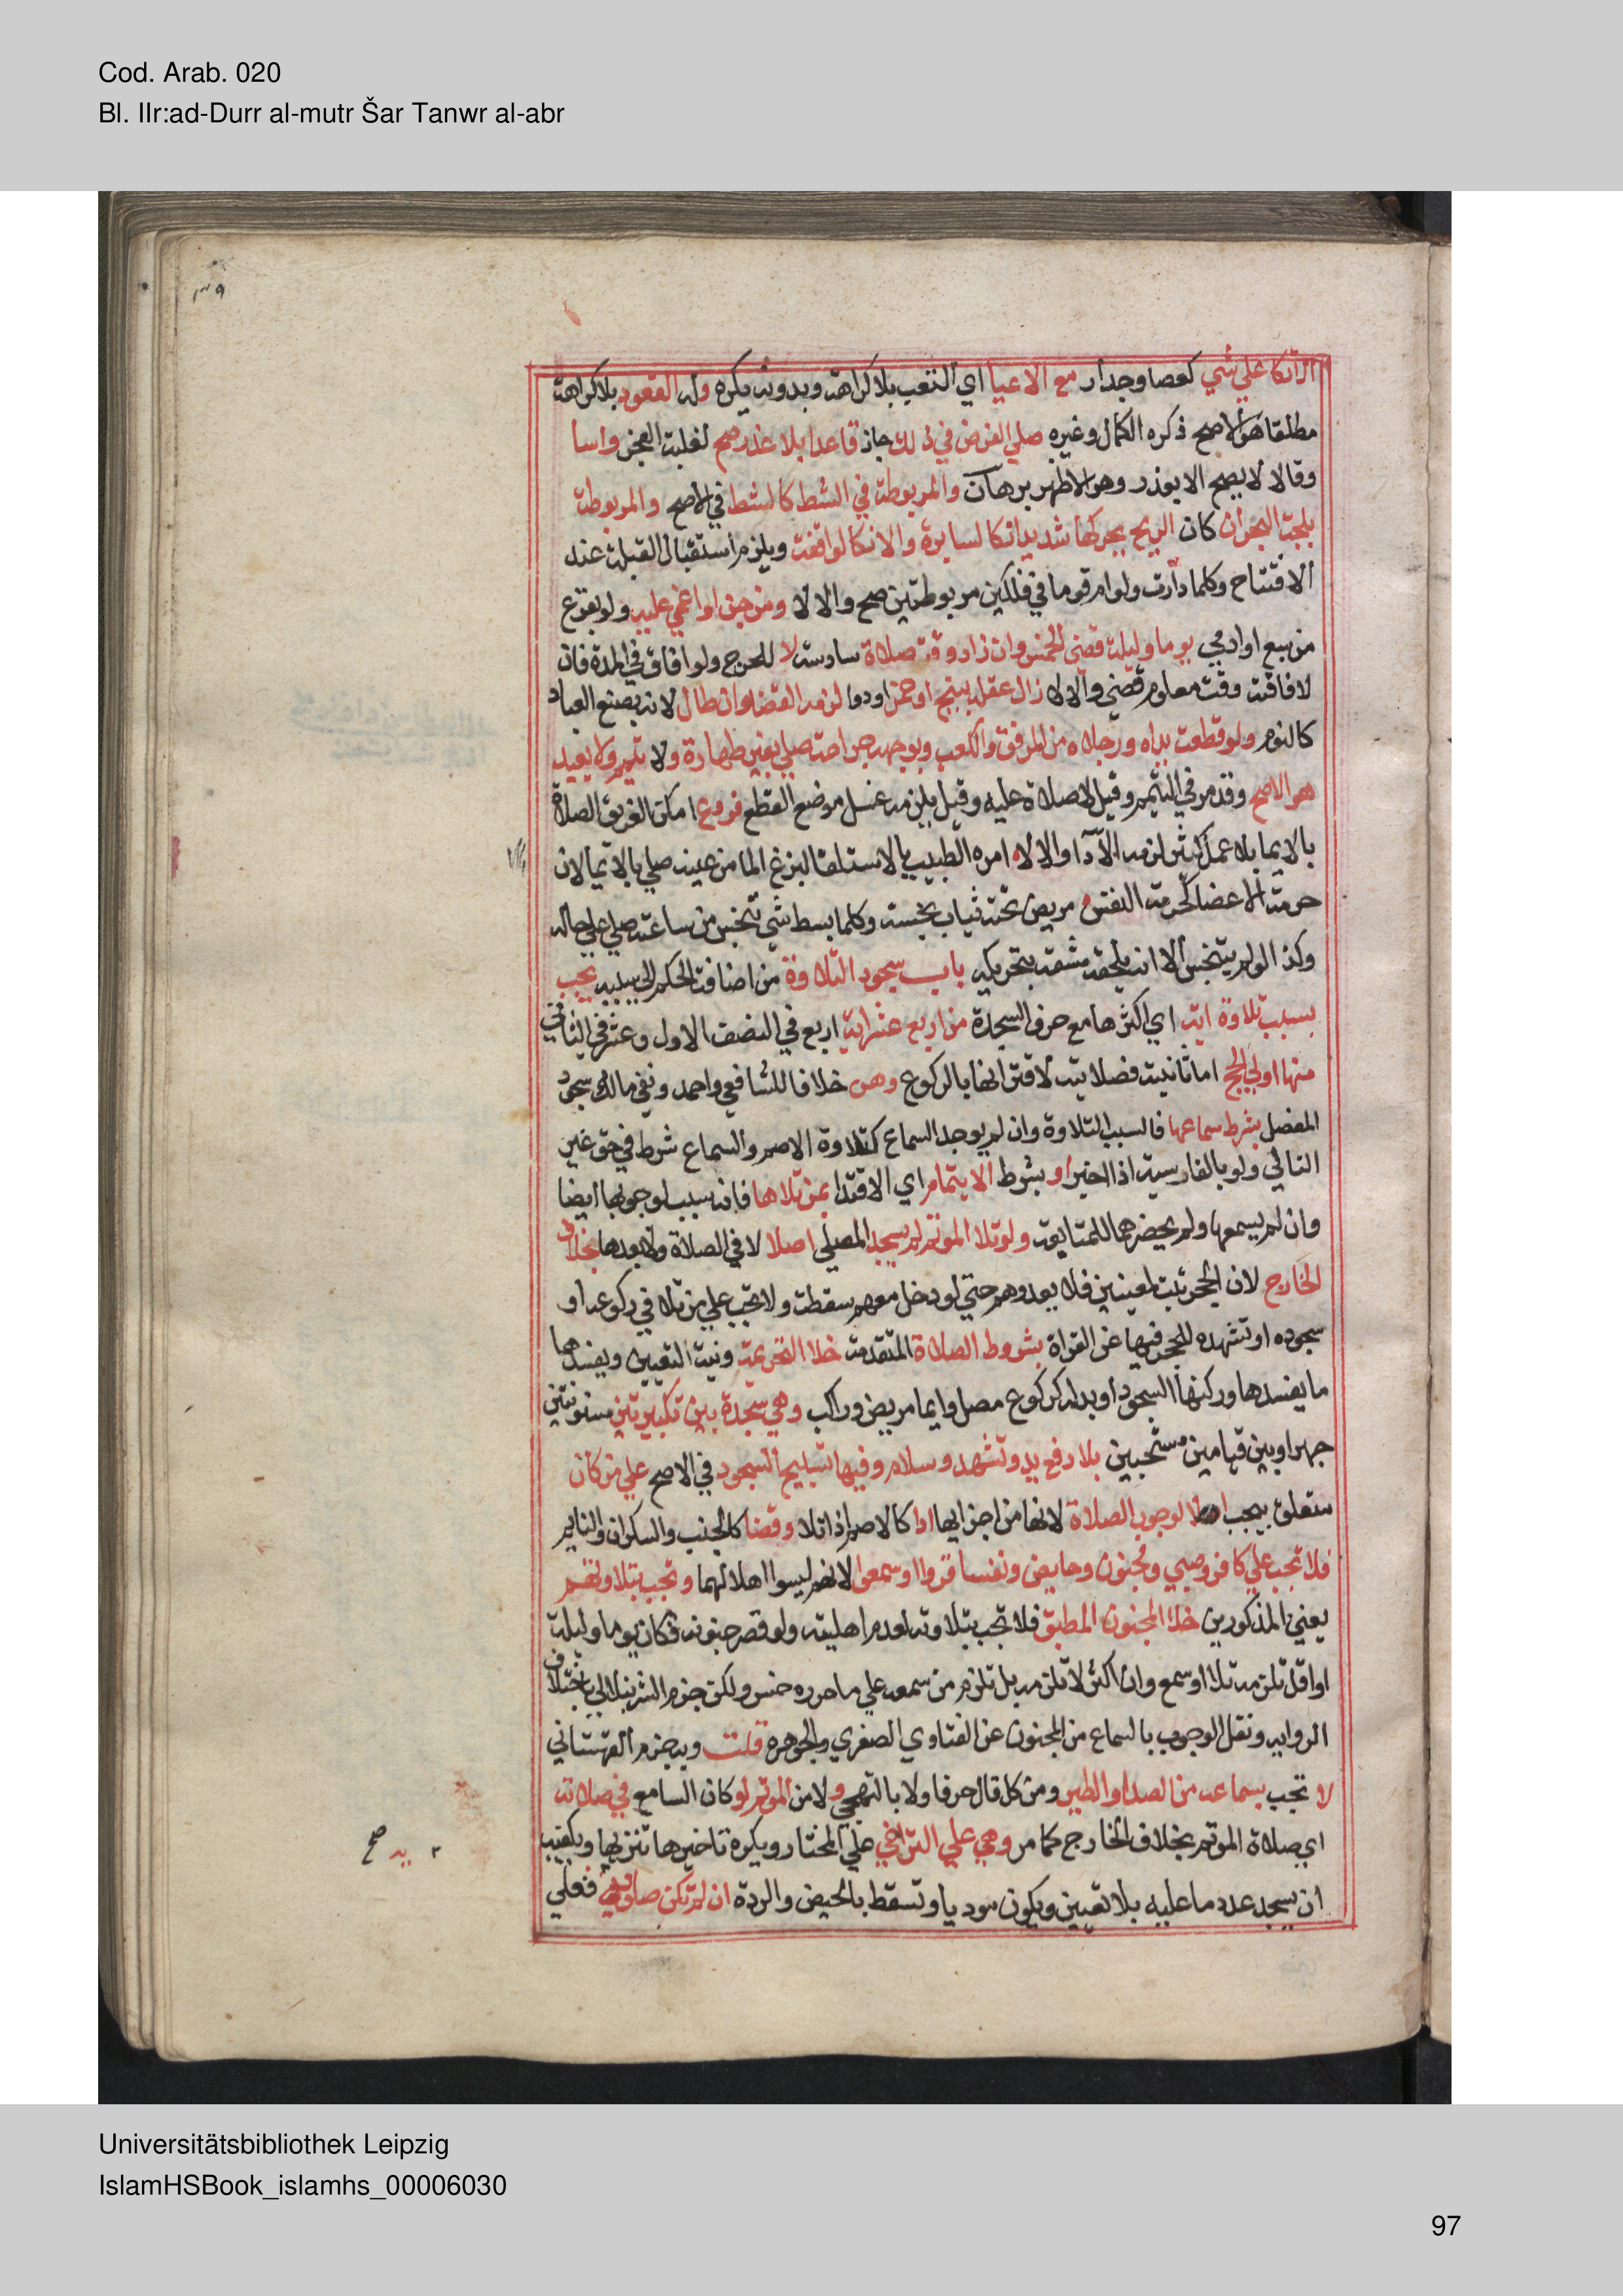 Cod. Arab. 020
Bl. IIr:ad-Durr al-mutr Šar Tanwr al-abr
٣٩
الاتكا علي شي كعصا وجدار مع الاعيا اي التعب بلا كراهة وبدونه يكره وله القعود بلا كراهة
مطلقا هو الاصح ذكره الكمال وغيره صلي الفرض في فلك جاز قاعدا بلا عذر صح لغلبة العجز واسا
وقالا لا يصح الا بعذر وهو الاظهر برهان والمربوطة في الشط كالشط في الاصح والمربوطة
بلجة البحر ان كان الريح يحركها شديدا فكالسايرة والا فكالواقفة ويلزم استقبال القبلة عند
الافتتاح وكلما دارت ولو ام قوما في فلكين مربوطتين صح والا لا ومن جن او اغمي عليه ولو بفزع
من سبع او ادمي يوما وليلة قضي الخمس وان زاد وقت صلاة سادسة لا للحرج ولو افاق في المدة فان
لافاقته وقت معلوم قضي والا لا زال عقله ببنج او خمر او دوا لزمه القضا وان طال لانه بصنع العباد
كالنوم ولو قطعت يداه ورجلاه من المرفق والكعب وبوجهه جراحة صلي بغير طهارة ولا تيمم ولا يعيد
هو الاصح وقد مر في التيمم وقيل لا صلاة عليه وقيل يلزمه غسل موضع القطع فروع امكن الغريق الصلاة
بالايما بلا عمل كثير لزمه الادا والا لا امره الطبيب بالاستلقا لبزغ الما من عينه صلي بالايما لان
حرمة الاعضا كحرمة النفس مريض تحته ثياب نجسة وكلما بسط شي تنجس من ساعته صلي علي حاله
وكذا لو لم يتنجس الا انه يلحقه مشقة بتحريكه باب سجود التلاوة من اضافة الحكم الي سببه يجب
بسبب تلاوة اية اي اكثرها مع حرف السجدة من اربع عشر اية اربع في النصف الاول وعشر في الثاني
منها اولي الحج اما ثانيته فصلاتية لاقترانها بالركوع وص خلافا للشافعي واحمد ونفي مالك سجود
المفصل بشرط سماعها فالسبب التلاوة وان لم يوجد السماع كتلاوة الاصم والسماع شرط في حق غير
التالي ولو بالفارسية اذا اخبر او بشرط الايتمام اي الاقتدا بمن تلاها فانه سبب لوجوبها ايضا
وان لم يسمعها ولم يحضرها للمتابعة ولو تلا الموتم لم يسجد المصلي اصلا لا في الصلاة ولا بعدها بخلاف
الخارج لان الحجر ثبت لمعينين فلا يعدوهم حتي لو دخل معهم سقطت ولا تجب علي من تلا في ركوعه او
سجوده او تشهده للحجر فيها عن القراة بشروط الصلاة المتقدمة خلا التحريمة ونية التعيين ويفسدها
ما يفسدها وركنها السجود او بدله كركوع مصل وايما مريض وراكب وهي سجدة بين تكبيرتين مسنونتين
جهرا وبين قيامين مستحبين بلا رفع يد وتشهد وسلام وفيها تسبيح السجود في الاصح علي من كان
متعلق بيجب اهلا لوجوب الصلاة لانها من اجزايها ادا كالاصم اذا تلا وقضا كالجنب والسكران والنايم
فلا تجب علي كافر وصبي ومجنون وحايض ونفسا قروا او سمعوا لانهم ليسوا اهلا لهما وتجب بتلاوتهم
يعني المذكورين خلا المجنون المطبق فلا تجب بتلاوته لعدم اهليته ولو قصر جنونه فكان يوما وليلة
او اقل تلزمه تلا او سمع وان اكثر لا تلزمه بل تلزم من سمعه علي ما حرره خسرو لكن جزم الشرنبلالي باختلاف
الرواية ونقل الوجوب بالسماع من المجنون عن الفتاوي الصغري والجوهرة قلت وبه جزم القهستاني
لا تجب بسماعه من الصدا والطير ومن كل قال حرفا ولا بالتهجي ولا من الموتم لو كان السامع في صلاته
اي صلاة الموتم بخلاف الخارج كما مر وهي علي التراخي علي المختار ويكره تاخيرها تنزيها ويكفيه
ان يسجد عدد ما عليه بلا تعيين ويكون موديا وتسقط بالحيض والردة ان لم تكن صلوية فعلي
صح
Universitätsbibliothek Leipzig
IslamHSBook_islamhs_00006030
97